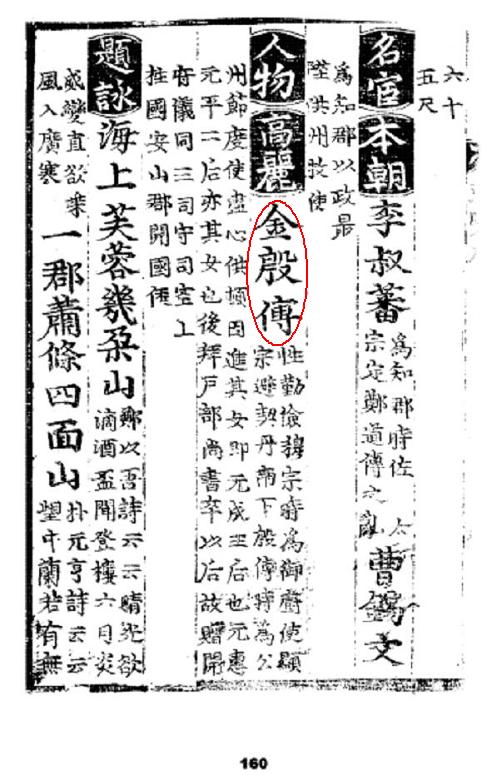 六十
五尺
名宦 本朝 李叔蕃 為知郡時佐太
宗定鄭道傳之亂 曹錫文
為知郡以政最
陞洪州牧使
人物 高麗 金殷傅 性勤儉穆宗時為御廚使顯
宗避契丹南下殷傅時為公
州節度使盡心供頓因進其女即元成王后也元惠
元平二后亦其女也後拜戶部尚書卒以后故贈開
府儀同三司守司空上
柱國安山郡開國侯
題詠 海上芙蓉幾朶山 鄭以吾詩云云晴光欲
滴酒盃開登樓六月炎
威變直欲乘
風入廣寒 一郡蕭條四面山 朴元亨詩云云
望中蘭若有無
160